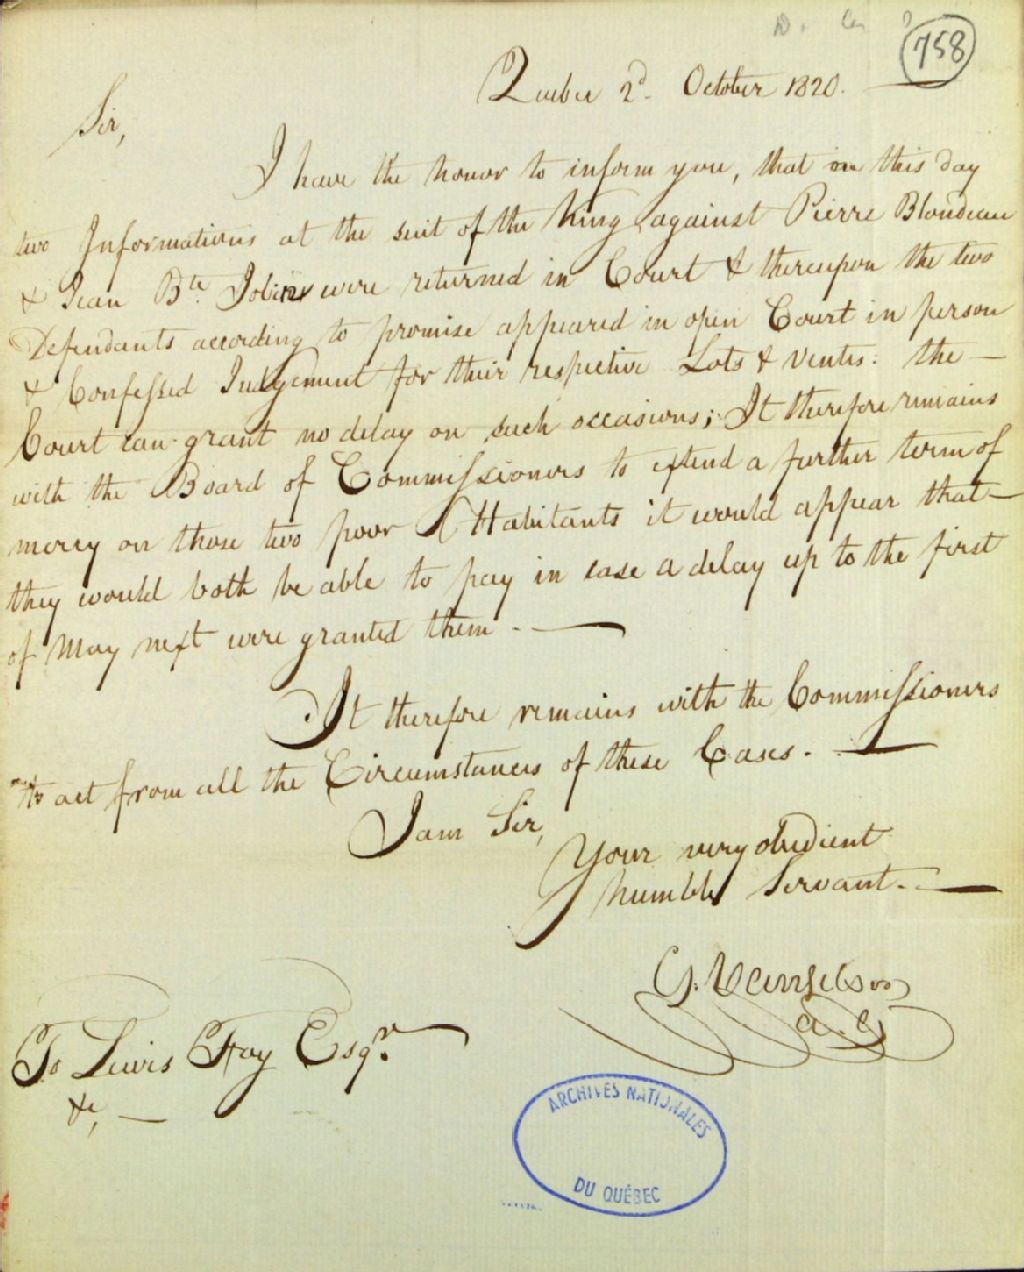 758
Quebec 2d. October 1820.
Sir,
I have the honor to inform you, that on this day
two Informations at the suit of the King against Pierre Blondeau
& Jean Bte. Jobin were returned in Court & thereupon the two
Defendants according to promise appeared in open Court in person
& Confessed Judgement for their respective Lots & Ventes. the —
Court can grant no delay on such occasions; It therefore remains
with the Board of Commissioners to extend a further term of
mercy on those two poor Habitants it would appear that —
they would both be able to pay in case a delay up to the first
of May next were granted them. —
It therefore remains with the Commissioners
to act from all the Circumstances of these Cases. —
I am Sir,
Your very obedient
humble Servant. —
G. Vanfelson
A. G
To Lewis Foy Esqr.
&c, —
ARCHIVES NATIONALES
DU QUÉBEC